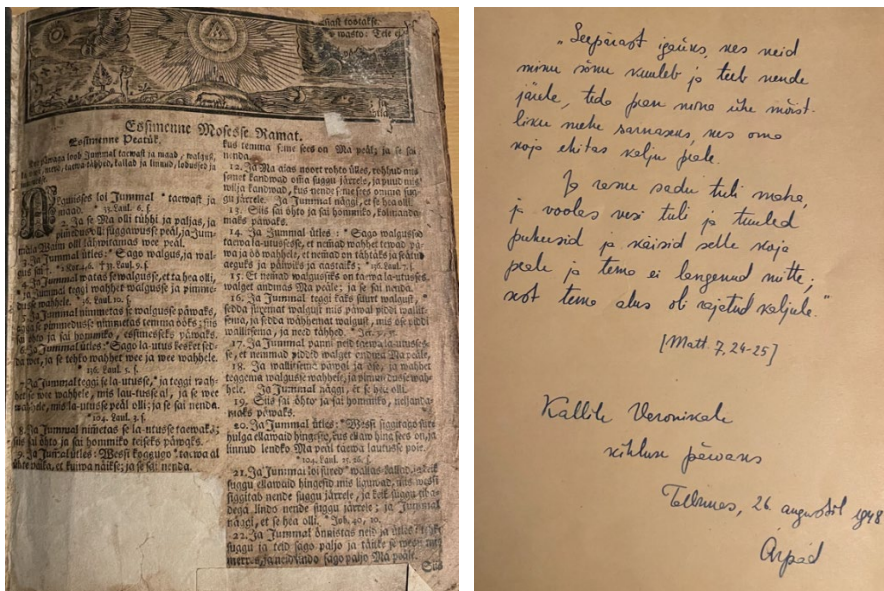 Essimenne Mosesse Ramat.
Essimenne Peatük.
taewast ja maad, walgust,
taewa tähhed, kallad ja linnud, lodussed ja
Alguses loi Jummal * taewast ja
maad. * 33. Laul. 6. f.
2. Ja se Ma olli tühhi ja paljas, ja
pimmedus olli suggawusse peäl, ja Jum-
mala Waim olli liikwamas wee peäl.
3. Ja Jummal ütles: * Sago walgus, ja wal-
gus sai.
4. Ja Jummal näggi sewalgusse, et ta hea olli,
ja Jummal teggi wahhet walgusse ja pimme-
dusse wahhele.
5. Ja Jummal nimmetas se walgusse päwaks,
ja se pimmedusse nimmetas temma ööks; siis
sai õhto ja sai hommiko, essimesseks päwaks.
6. Ja Jummal ütles: * Sago la-utus keskel sed-
da wet, ja se tehko wahhet wee ja wee wahhele.
* 136. Laul. 5. f.
7. Ja Jummal teggi se la-utusse, * ja teggi wah-
het se wee wahhele, mis lau-tusse al, ja se wee
wahhele, mis la-utusse peäl olli; ja se sai nenda.
* 104. Laul. 3. f.
8. Ja Jummal nimetas se la-utusse taewaks;
siis sai õhto ja sai hommiko teiseks päwaks.
9. Ja Jummal ütles: * Wessi koggugo * taewa al
ühte paika, et kuiwa näikse; ja se sai nenda.
kus temma seme sees on Ma peäl; ja se sai
nenda.
12. Ja Ma aias noort rohto ülles, rohhud mis
semet kandwad omma suggu järrele, ja puud mis
wilja kandwad, kus nende seme sees omma sug-
gu järrele. Ja Jummal näggi, et se hea olli.
13. Siis sai õhto ja sai hommiko, kolmanda-
maks päwaks.
14. Ja Jummal ütles: * Sago walgussed
taewa la-utussesse, et nemmad wahhet tewad pä-
wa ja öö wahhele, et nemmad on tähhäks ja seätud
aeguks ja päiwiks ja aastaks; * 136. Laul. 7. f.
15. Et nemmad walgussiks on taewa la-utusses,
walget andmas Ma peäle; ja se sai nenda.
16. Ja Jummal teggi kaks suurt walgust, *
sedda suremat walgust mis päwal piddi wallit-
sema, ja sedda wähhemat walgust, mis öse piddi
wallitsema, ja need tähhed.
17. Ja Jummal panni neid taewa la-utusses-
se, et nemmad piddid walget andma Ma peäle,
18. Ja wallitsema päwal ja öse, ja wahhet
teggema walgusse wahhele, ja pimmedusse wah-
hele. Ja Jummal näggi, et se hea olli.
19. Siis sai õhto ja sai hommiko, neljanda-
maks päwaks.
20. Ja Jummal ütles: * Wessi siggitago sure
hulga ellawaid hingesid, kus ellaw hing sees on, ja
linnud lendko Ma peäl taewa lautusse poie.
* 104. Laul. 25. 26. f.
21. Ja Jummal loi sured * wallas-kallad, ja keik
suggu ellawaid hingesid mis liguwad, mis wessi
siggitab nende suggu järrele, ja keik suggu tiba-
dega lindo nende suggu järrele; ja Jummal
näggi, et se hea olli. * Job. 40, 20.
22. Ja Jummal õnnistas neid ja ütles:
suggu ja teid sago paljo ja täitke se wessi
merres, ja neid lindo sago paljo Ma peäle.
Siis
"Seepärast igaüks, kes neid
minu sõnu kuuleb ja teeb nende
järele, teda pean mina ühe mõist-
liku mehe sarnaseks, kes oma
koja ehitas kalju peale.
Ja raske sadu tuli maha,
ja voolas vesi tuli ja tuuled
puhusid ja käisid selle koja
peale ja tema ei langenud mitte;
sest tema alus oli rajatud kaljule."
[Matt. 7, 24-25]
Kallile Veronikale
kihluse päevaks
Tallinnas, 26. augustil 1948
Árpád